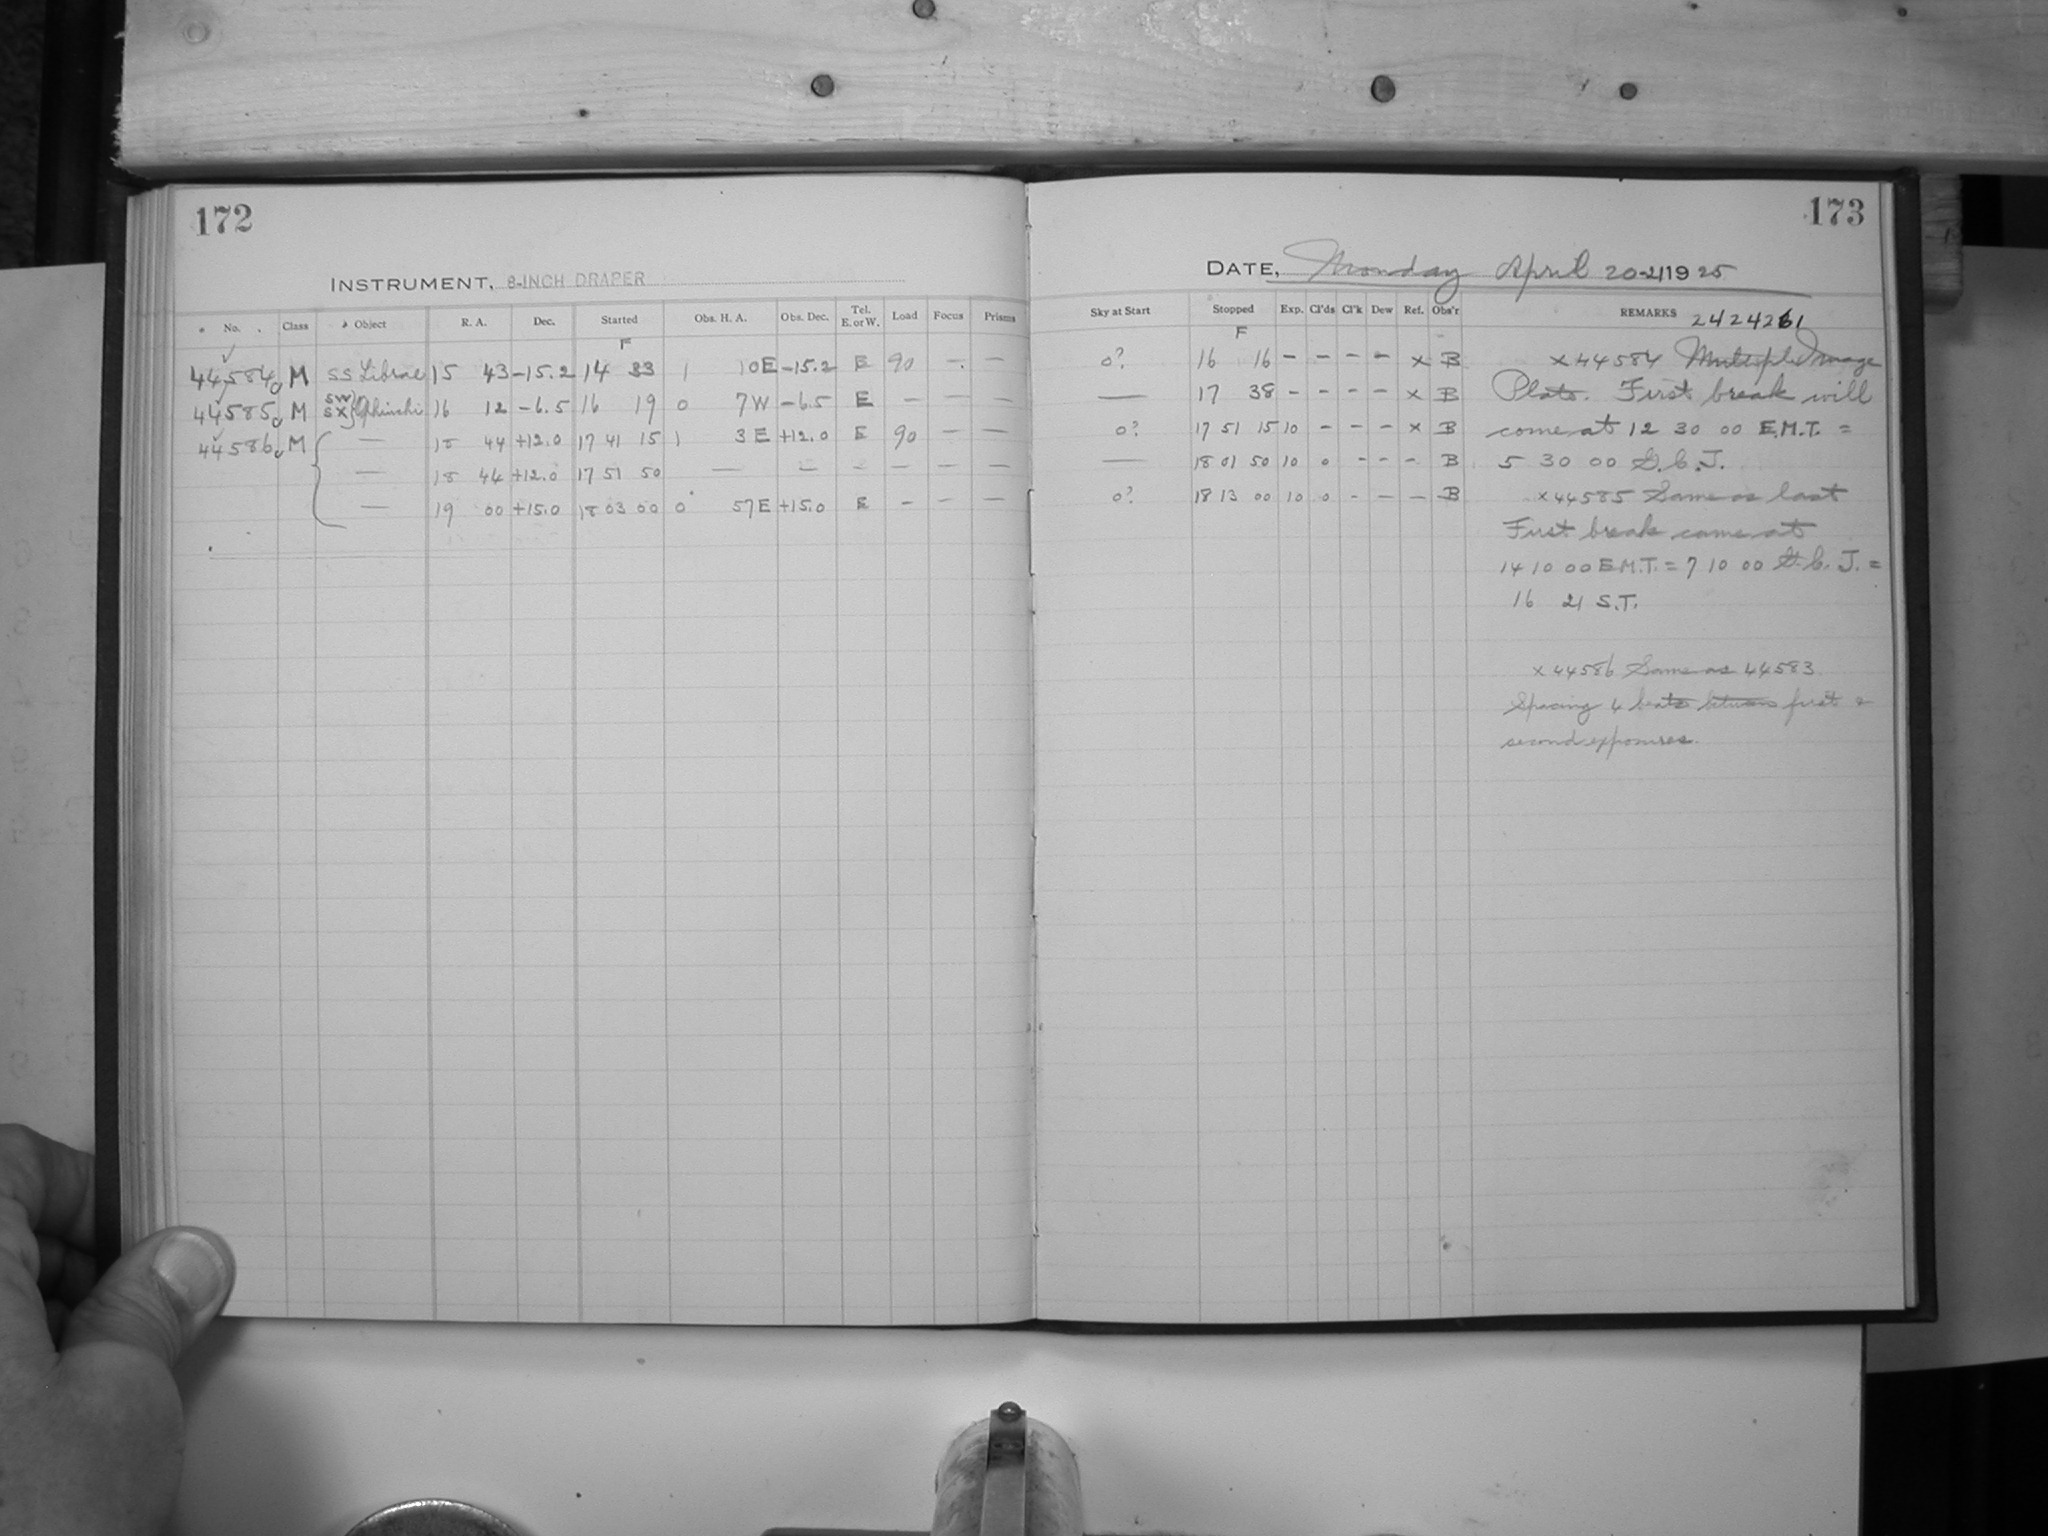 172
INSTRUMENT, 8-INCH DRAPER
* No. Class Object R. A. Dec. Started Obs. H. A. Obs. Dec. Tel. E. or W. Load Focus Prisms
F
44584 M SS Librae 15 43 -15.2 14 33 1 10E -15.2 E 90 - -
44585 M SW SX } Ophiuchi 16 12 -6.5 16 19 0 7W -6.5 E - - -
44586 M { — 18 44 +12.0 17 41 15 1 3E +12.0 E 90 - -
— 18 44 +12.0 17 51 50 — — - - - -
— 19 00 +15.0 18 03 00 0 57E +15.0 E - - -
173
DATE, Monday April 20-21 1925
Sky at Start Stopped Exp. Cl'ds Cl'k Dew Ref. Obs'r REMARKS 2424261
F
0? 16 16 - - - - x B
— 17 38 - - - - x B
0? 17 51 15 10 - - - x B
— 18 01 50 10 0 - - - B
0? 18 13 00 10 0 - - - B
x 44584 Multiple Image
Plate. First break will
come at 12 30 00 E.M.T. =
5 30 00 G.C.J.
x 44585 Same as last
First break came at
14 10 00 E.M.T. = 7 10 00 G.C.J. =
16 21 S.T.
x 44586 Same as 44583
Spacing 4 beats between first &
second exposures.